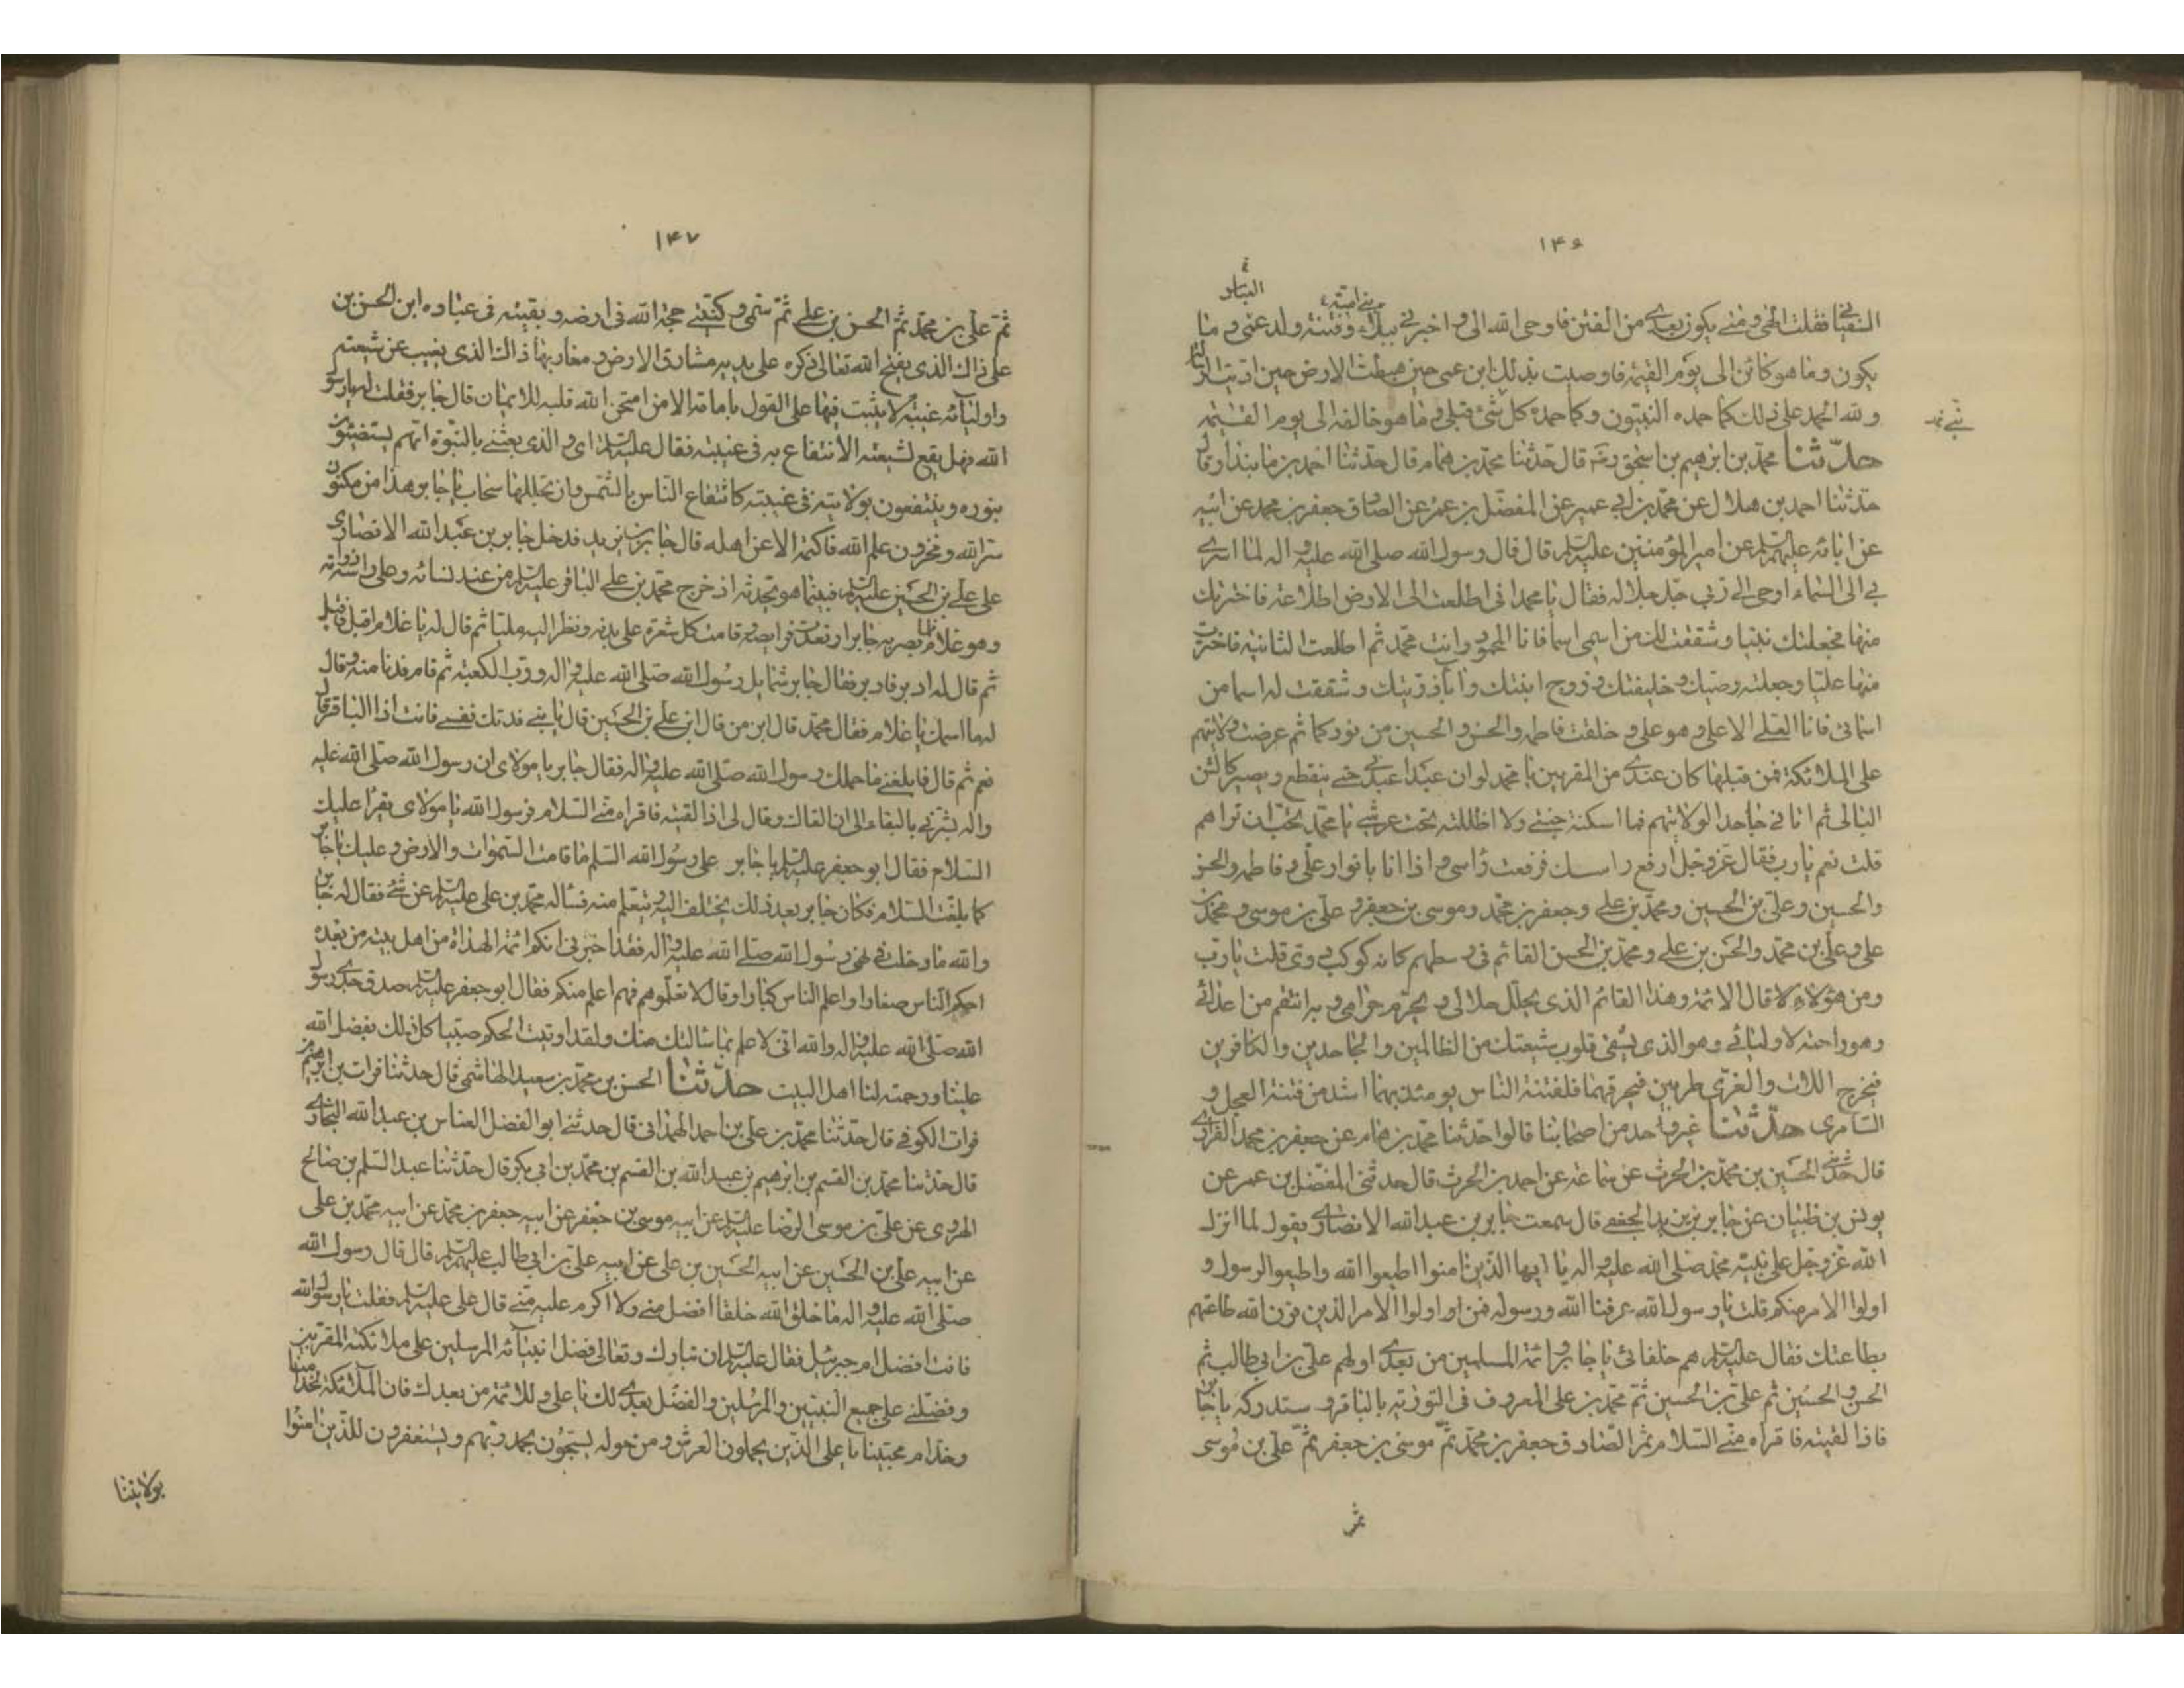 ۱۴۶
النقبا فقلت الهی و متی یکون بعدی من الفتن فاوحی الله الی و اخبرنی ببلاء بنی امیة و فتنة ولد عمی و ما
یکون و ما هو کائن الی یوم القیمه فاوصیت بذلک ابن عمی حین هبطت الارض حین ادیت الرسالة
و لله الحمد علی ذلک کما حمده النبیون و کما حمده کل شئ قبلی و ما هو خالقه الی یوم القیمه
حدّثنا محمد بن ابرهیم بن اسحق قال حدثنا محمد بن همام قال حدثنا احمد بن مابنداذ قال
حدثنا احمد بن هلال عن محمد بن ابی عمیر عن المفضل بن عمر عن الصادق جعفر بن محمد عن ابیه
عن ابائه علیهم السلم عن امیر المؤمنین علیه السلم قال قال رسول الله صلی الله علیه و اله لما اسری
بی الی السماء اوحی الی ربی جل جلاله فقال یا محمد انی اطلعت الی الارض اطلاعة فاخترتک
منها فجعلتک نبیا و شققت لک من اسمی اسما فانا المحمود و انت محمد ثم اطلعت الثانیه فاخترت
منها علیا و جعلته وصیک و خلیفتک و زوج ابنتک و ابا ذریتک و شققت له اسما من
اسمائی فانا العلی الاعلی و هو علی و خلقت فاطمه و الحسن و الحسین من نورکما ثم عرضت ولایتهم
علی الملائکة فمن قبلها کان عندی من المقربین یا محمد لو ان عبدا عبدنی حتی ینقطع و یصیر کالشن
البالی ثم اتانی جاحدا لولایتهم فما اسکنه جنتی و لا اظللته تحت عرشی یا محمد تحب ان تراهم
قلت نعم یا رب فقال عز و جل ارفع راسک فرفعت راسی و اذا انا بانوار علی و فاطمه و الحسن
و الحسین و علی بن الحسین و محمد بن علی و جعفر بن محمد و موسی بن جعفر و علی بن موسی و محمد بن
علی و علی بن محمد و الحسن بن علی و محمد بن الحسن القائم فی وسطهم کانه کوکب دری قلت یا رب
و من هؤلاء قال الائمة و هذا القائم الذی یحلل حلالی و یحرم حرامی و به انتقم من اعدائی
و هو راحة لاولیائی و هو الذی یشفی قلوب شیعتک من الظالمین و الجاحدین و الکافرین
فیخرج اللات و العزی طریین فیحرقهما فلفتنة الناس یومئذ بهما اشد من فتنة العجل و
السامری حدّثنا غیر واحد من اصحابنا قالوا حدثنا محمد بن همام عن جعفر بن محمد الفزاری
قال حدثنی الحسین بن محمد بن الحرث عن سماعه عن احمد بن الحرث قال حدثنی المفضل بن عمر عن
یونس بن ظبیان عن جابر بن یزید الجعفی قال سمعت جابر بن عبد الله الانصاری یقول لما انزل
الله عز و جل علی نبیه محمد صلی الله علیه و اله یا ایها الذین امنوا اطیعوا الله و اطیعوا الرسول و
اولوا الامر منکم قلت یا رسول الله عرفنا الله و رسوله فمن اولوا الامر الذین قرن الله طاعتهم
بطاعتک فقال علیه السلم هم خلفائی یا جابر و ائمة المسلمین من بعدی اولهم علی بن ابی طالب ثم
الحسن و الحسین ثم علی بن الحسین ثم محمد بن علی المعروف فی التوریة بالباقر و ستدرکه یا جابر
فاذا لقیته فاقراه منی السلام ثم الصادق جعفر بن محمد ثم موسی بن جعفر ثم علی بن موسی
ثم
۱۴۷
ثم علی بن محمد ثم الحسن بن علی ثم سمیی و کنیی حجة الله فی ارضه و بقیته فی عباده ابن الحسن بن
علی ذاک الذی یفتح الله تعالی ذکره علی یدیه مشارق الارض و مغاربها ذاک الذی یغیب عن شیعته
و اولیائه غیبة لا یثبت فیها علی القول بامامته الا من امتحن الله قلبه للایمان قال جابر فقلت له یا رسول
الله فهل یقع لشیعته الانتفاع به فی غیبته فقال علیه السلم ای و الذی بعثنی بالنبوة انهم یستضیئون
بنوره و ینتفعون بولایته فی غیبته کانتفاع الناس بالشمس و ان تجللها سحاب یا جابر هذا من مکنون
سر الله و مخزون علم الله فاکتمه الا عن اهله قال جابر بن یزید فدخل جابر بن عبد الله الانصاری
علی علی بن الحسین علیه السلم فبینما هو یحدثه اذ خرج محمد بن علی الباقر علیه السلم من عند نسائه و علی راسه ذوابة
و هو غلام فلما بصر به جابر ارتعدت فرایصه و قامت کل شعرة علی بدنه و نظر الیه ملیا ثم قال له یا غلام اقبل فاقبل
ثم قال له ادبر فادبر فقال جابر شمایل رسول الله صلی الله علیه و اله و رب الکعبة ثم قام فدنا منه و قال
له ما اسمک یا غلام فقال محمد قال ابن من قال ابن علی بن الحسین قال یا بنی فدتک نفسی فانت اذا الباقر قال
نعم ثم قال فابلغنی ما حملک رسول الله صلی الله علیه و اله فقال جابر یا مولای ان رسول الله صلی الله علیه
و اله بشرنی بالبقاء الی ان القاک و قال لی اذا لقیته فاقراه منی السلام فرسول الله یا مولای یقرأ علیک
السلام فقال ابو جعفر علیه السلم یا جابر علی رسول الله السلم ما قامت السموات و الارض و علیک یا جابر
کما بلغت السلام فکان جابر بعد ذلک یختلف الیه و یتعلم منه فساله محمد بن علی علیه السلم عن شئ فقال له جابر
و الله ما دخلت فی نهی رسول الله صلی الله علیه و اله فقد اخبرنی انکم ائمة الهداة من اهل بیته من بعده
احکم الناس صغارا و اعلم الناس کبارا و قال لا تعلموهم فهم اعلم منکم فقال ابو جعفر علیه السلم صدق جدی رسول
الله صلی الله علیه و اله و الله انی لاعلم بما سالتک منک و لقد اوتیت الحکم صبیا کل ذلک بفضل الله
علینا و رحمته لنا اهل البیت حدّثنا الحسن بن محمد بن سعید الهاشمی قال حدثنا فرات بن ابرهیم بن
فرات الکوفی قال حدثنا محمد بن علی بن احمد الهمدانی قال حدثنی ابو الفضل العباس بن عبد الله البخاری
قال حدثنا محمد بن القسم بن ابرهیم بن عبد الله بن القسم بن محمد بن ابی بکر قال حدثنا عبد السلم بن صالح
الهروی عن علی بن موسی الرضا علیه السلم عن ابیه موسی بن جعفر عن ابیه جعفر بن محمد عن ابیه محمد بن علی
عن ابیه علی بن الحسین عن ابیه الحسین بن علی عن ابیه علی بن ابی طالب علیهم السلم قال قال رسول الله
صلی الله علیه و اله ما خلق الله خلقا افضل منی و لا اکرم علیه منی قال علی علیه السلم فقلت یا رسول الله
فانت افضل ام جبرئیل فقال علیه السلم ان الله تبارک و تعالی فضل انبیائه المرسلین علی ملائکته المقربین
و فضلنی علی جمیع النبیین و المرسلین و الفضل بعدی لک یا علی و للائمة من بعدک فان الملائکة لخدامنا
و خدام محبینا یا علی الذین یحملون العرش و من حوله یسبحون بحمد ربهم و یستغفرون للذین امنوا
بولایتنا